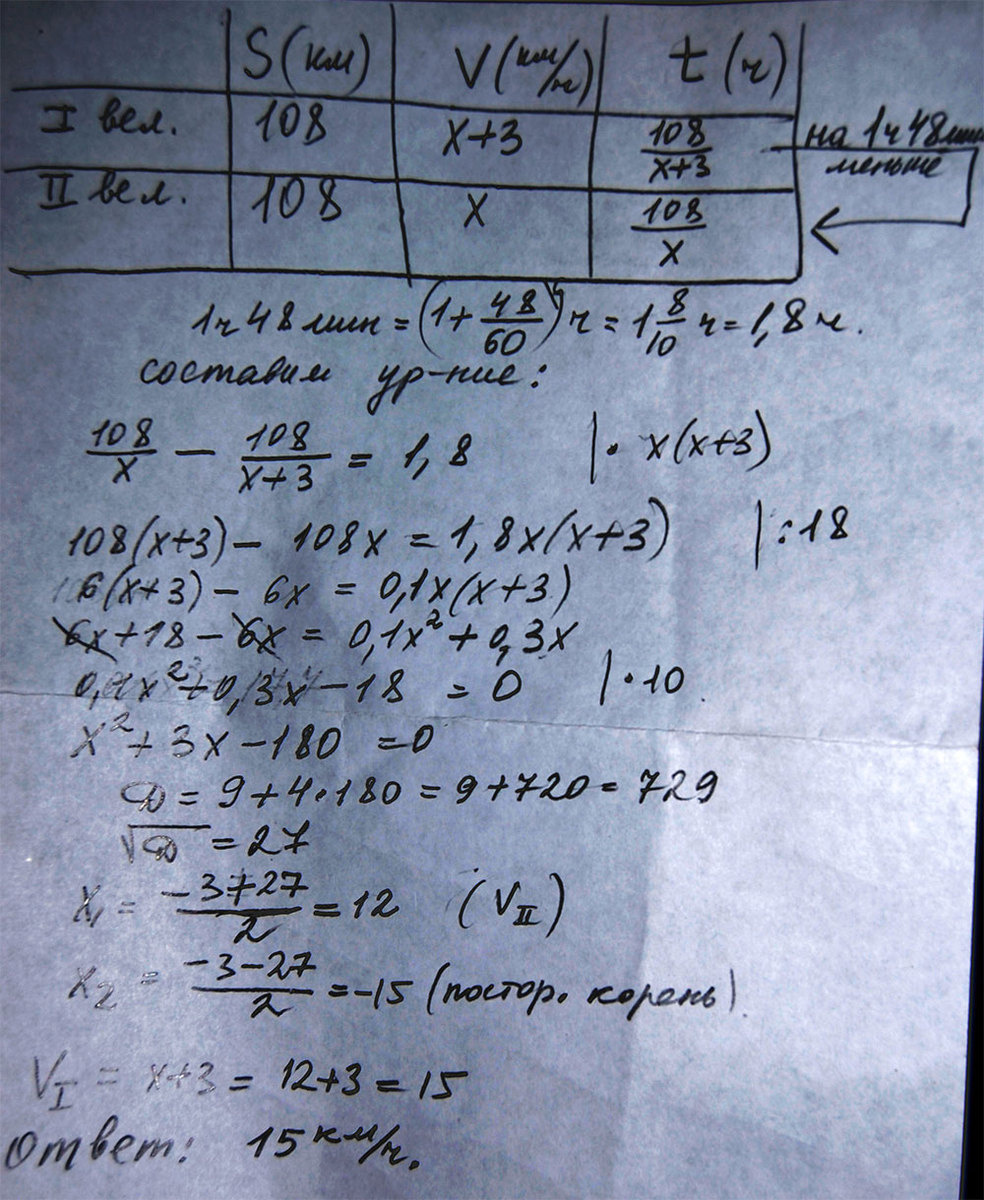 S (км) V (км/ч) t (ч)
I вел. 108 x+3 108/(x+3) на 1ч 48 мин
меньше
II вел. 108 x 108/x
1ч 48 мин = (1 + 48/60) ч = 1 8/10 ч = 1,8 ч.
составим ур-ние:
108/x − 108/(x+3) = 1,8 | · x(x+3)
108(x+3) − 108x = 1,8x(x+3) | :18
6(x+3) − 6x = 0,1x(x+3)
6x + 18 − 6x = 0,1x² + 0,3x
0,1x² + 0,3x − 18 = 0 | · 10
x² + 3x − 180 = 0
D = 9 + 4·180 = 9 + 720 = 729
√D = 27
x₁ = (−3+27)/2 = 12 (V_II)
x₂ = (−3−27)/2 = −15 (постор. корень)
V_I = x+3 = 12+3 = 15
Ответ: 15 км/ч.